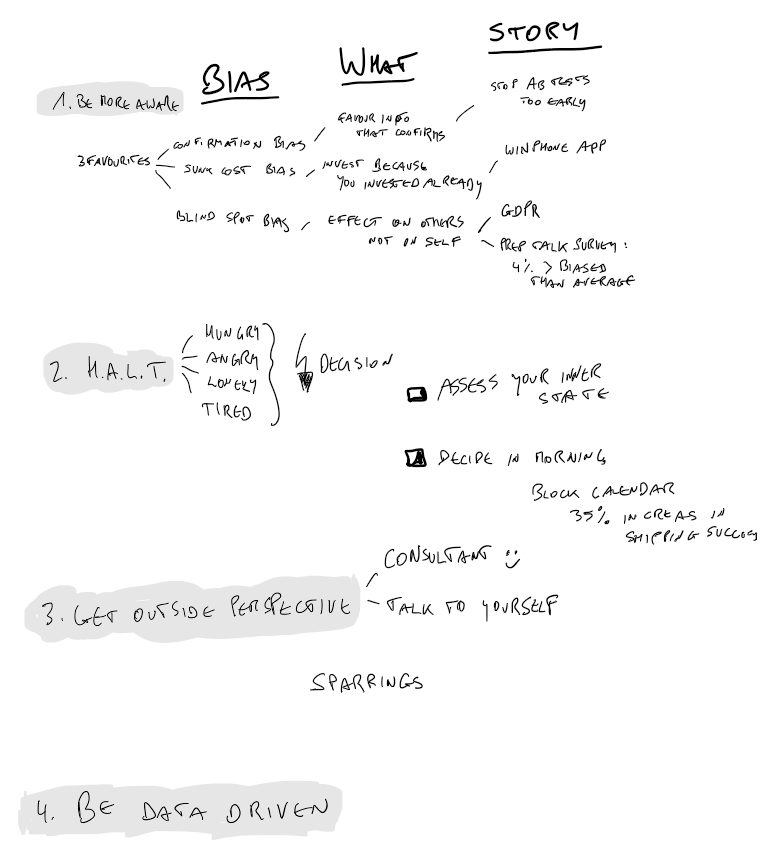 STORY
BIAS
WHAT
1. BE MORE AWARE
3 FAVOURITES
CONFIRMATION BIAS
FAVOUR INFO
THAT CONFIRMS
STOP AB TESTS
TOO EARLY
SUNK COST BIAS
INVEST BECAUSE
YOU INVESTED ALREADY
WINPHONE APP
BLIND SPOT BIAS
EFFECT ON OTHERS
NOT ON SELF
GDPR
PREP TALK SURVEY:
4% > BIASED
THAN AVERAGE
2. H.A.L.T.
HUNGRY
ANGRY
LONELY
TIRED
DECISION
ASSESS YOUR INNER
STATE
DECIDE IN MORNING
BLOCK CALENDAR
35% INCREAS IN
SHIPPING SUCCESS
3. GET OUTSIDE PERSPECTIVE
CONSULTANT
TALK TO YOURSELF
SPARRINGS
4. BE DATA DRIVEN